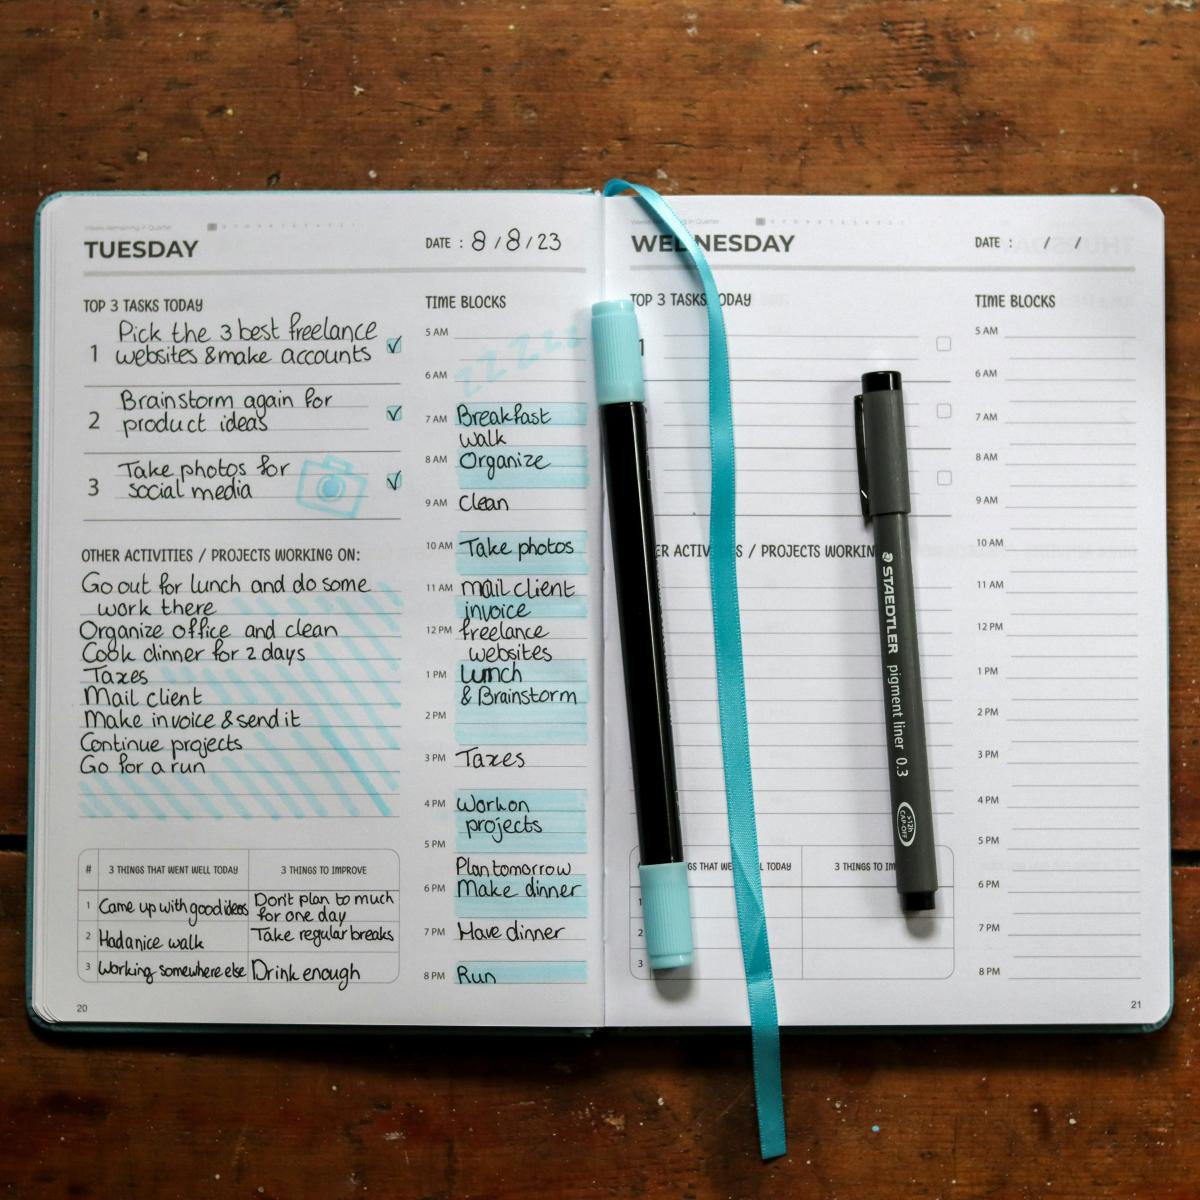 TUESDAY
DATE : 8 / 8 / 23
TOP 3 TASKS TODAY
1 Pick the 3 best freelance
websites & make accounts
2 Brainstorm again for
product ideas
3 Take photos for
social media
OTHER ACTIVITIES / PROJECTS WORKING ON:
Go out for lunch and do some
work there
Organize office and clean
Cook dinner for 2 days
Taxes
Mail client
Make invoice & send it
Continue projects
Go for a run
# 3 THINGS THAT WENT WELL TODAY 3 THINGS TO IMPROVE
1 Came up with good ideas Don't plan to much
for one day
2 Had a nice walk Take regular breaks
3 Working somewhere else Drink enough
20
TIME BLOCKS
5 AM
zzzzz
6 AM
7 AM Breakfast
walk
8 AM Organize
9 AM Clean
10 AM Take photos
11 AM mail client
invoice
12 PM freelance
websites
1 PM Lunch
& Brainstorm
2 PM
3 PM Taxes
4 PM Work on
projects
5 PM
Plan tomorrow
6 PM Make dinner
7 PM Have dinner
8 PM Run
WEDNESDAY
DATE : / /
TOP 3 TASKS TODAY
1
ER ACTIVITIES / PROJECTS WORKIN
GS THAT WENT WELL TODAY 3 THINGS TO IM
1
2
3
TIME BLOCKS
5 AM
6 AM
7 AM
8 AM
9 AM
10 AM
11 AM
12 PM
1 PM
2 PM
3 PM
4 PM
5 PM
6 PM
7 PM
8 PM
21
STAEDTLER pigment liner 0.3
>12h
CAP-OFF